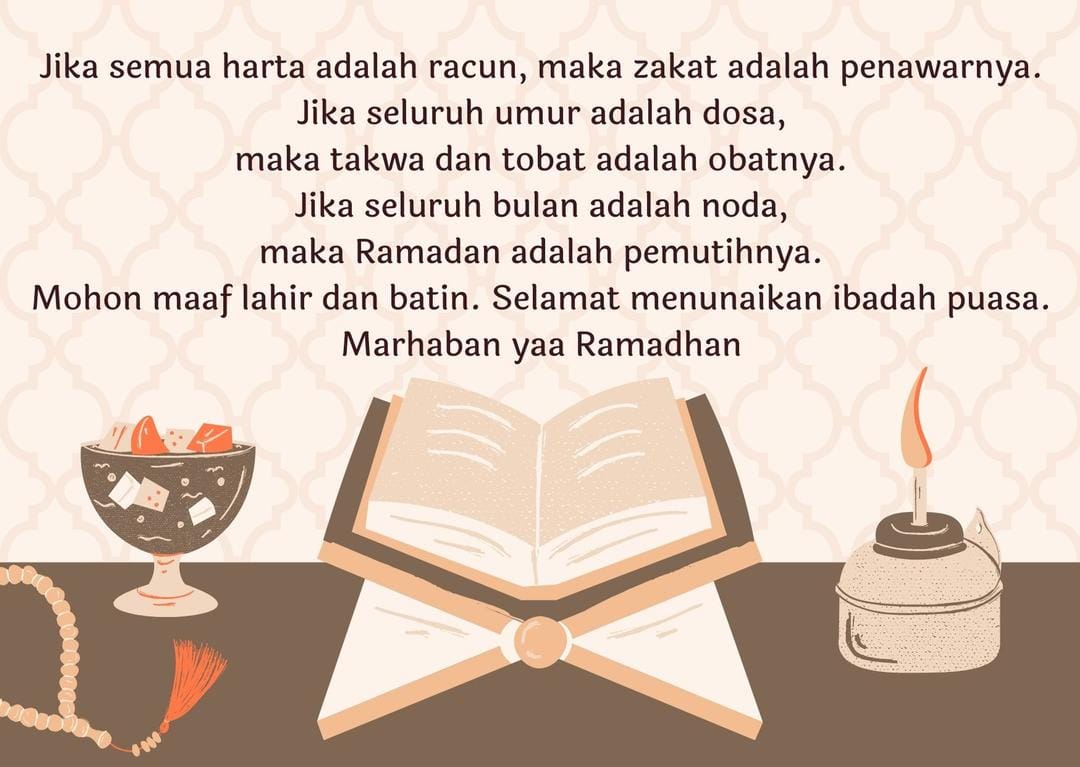 Jika semua harta adalah racun, maka zakat adalah penawarnya.
Jika seluruh umur adalah dosa,
maka takwa dan tobat adalah obatnya.
Jika seluruh bulan adalah noda,
maka Ramadan adalah pemutihnya.
Mohon maaf lahir dan batin. Selamat menunaikan ibadah puasa.
Marhaban yaa Ramadhan